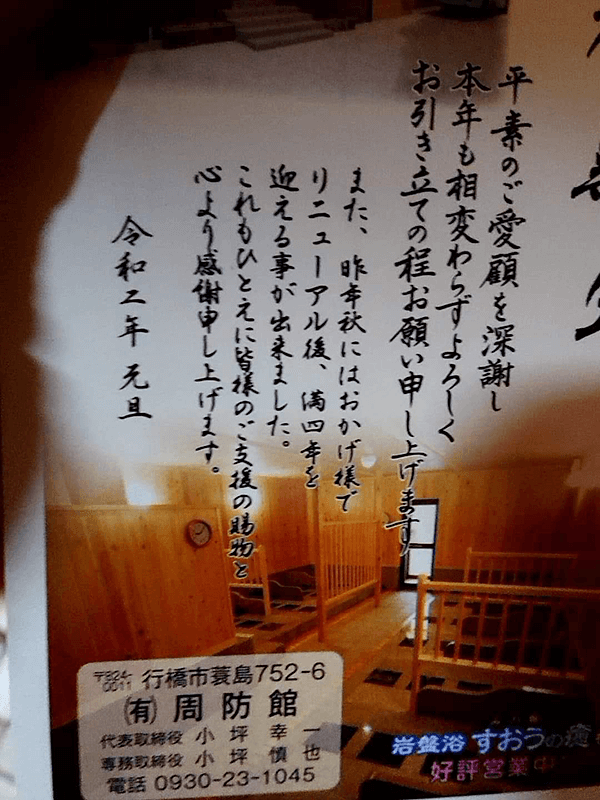 平素のご愛顧を深謝し
本年も相変わらずよろしく
お引き立ての程お願い申し上げます
また、昨年秋にはおかげ様で
リニューアル後、満四年を
迎える事が出来ました。
これもひとえに皆様のご支援の賜物と
心より感謝申し上げます。
令和二年 元旦
〒824-0011 行橋市蓑島752-6
㈲ 周防館
代表取締役 小坪 幸一
専務取締役 小坪 慎也
電話 0930-23-1045
岩盤浴 すおうの癒
好評営業中